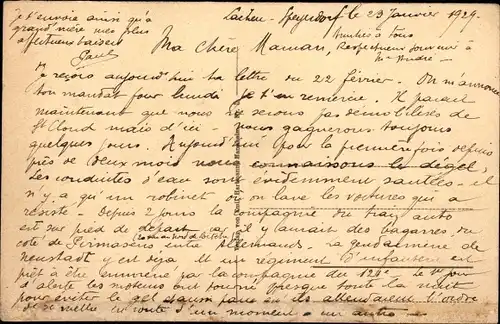 je t'envoie ainsi qu'à
grand'mère mes plus
affectueux baisers
Paul
Lachen-Speyerdorf le 23 Janvier 1929.
Amitiés à tous
Respectueux souvenir à
Mr André
Ma chère Maman,
Je reçois aujourd'hui ta lettre du 22 février. On m'annonce
ton mandat pour lundi je t'en remercie. Il parait
maintenant que nous ne serons pas démobilisés de
St Cloud mais d'ici - nous gagnerons toujours
quelques jours. Aujourd'hui pour la première fois depuis
près de deux mois nous connaissons le dégel,
les conduites d'eau sont évidemment sautées - il
n'y a qu'un robinet où on lave les voitures qui a
résisté - Depuis 2 jours la compagnie du train auto
est sur pied de départ car il y aurait des bagarres du
côté de Pirmasens entre allemands. La gendarmerie de
Neustadt y est déjà et un régiment d'infanterie est
prêt à être emmené par la compagnie du 128e. Le 1er jour
d'alerte les moteurs ont tourné presque toute la nuit
pour éviter le gel et aussi parce qu'ils attendaient l'ordre
de se mettre en route d'un moment à un autre